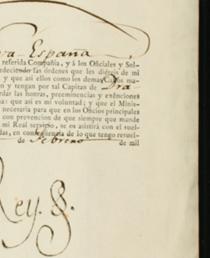 va España
referida Compañía, y á los Oficiales y Sol-
las órdenes que les diereis de mi
y que así ellos como los demas
n y tengan por tal Capitan de Dra
rdar las honras, preeminencias y exênciones
que así es mi voluntad; y que el Minis-
necesaria para que en los Oficios principales
con prevencion de que siempre que mande
mi Real servicio, se os asistirá con el suel-
das, en conseqüencia de lo que tengo resuel-
de Febrero de mil
Rey.